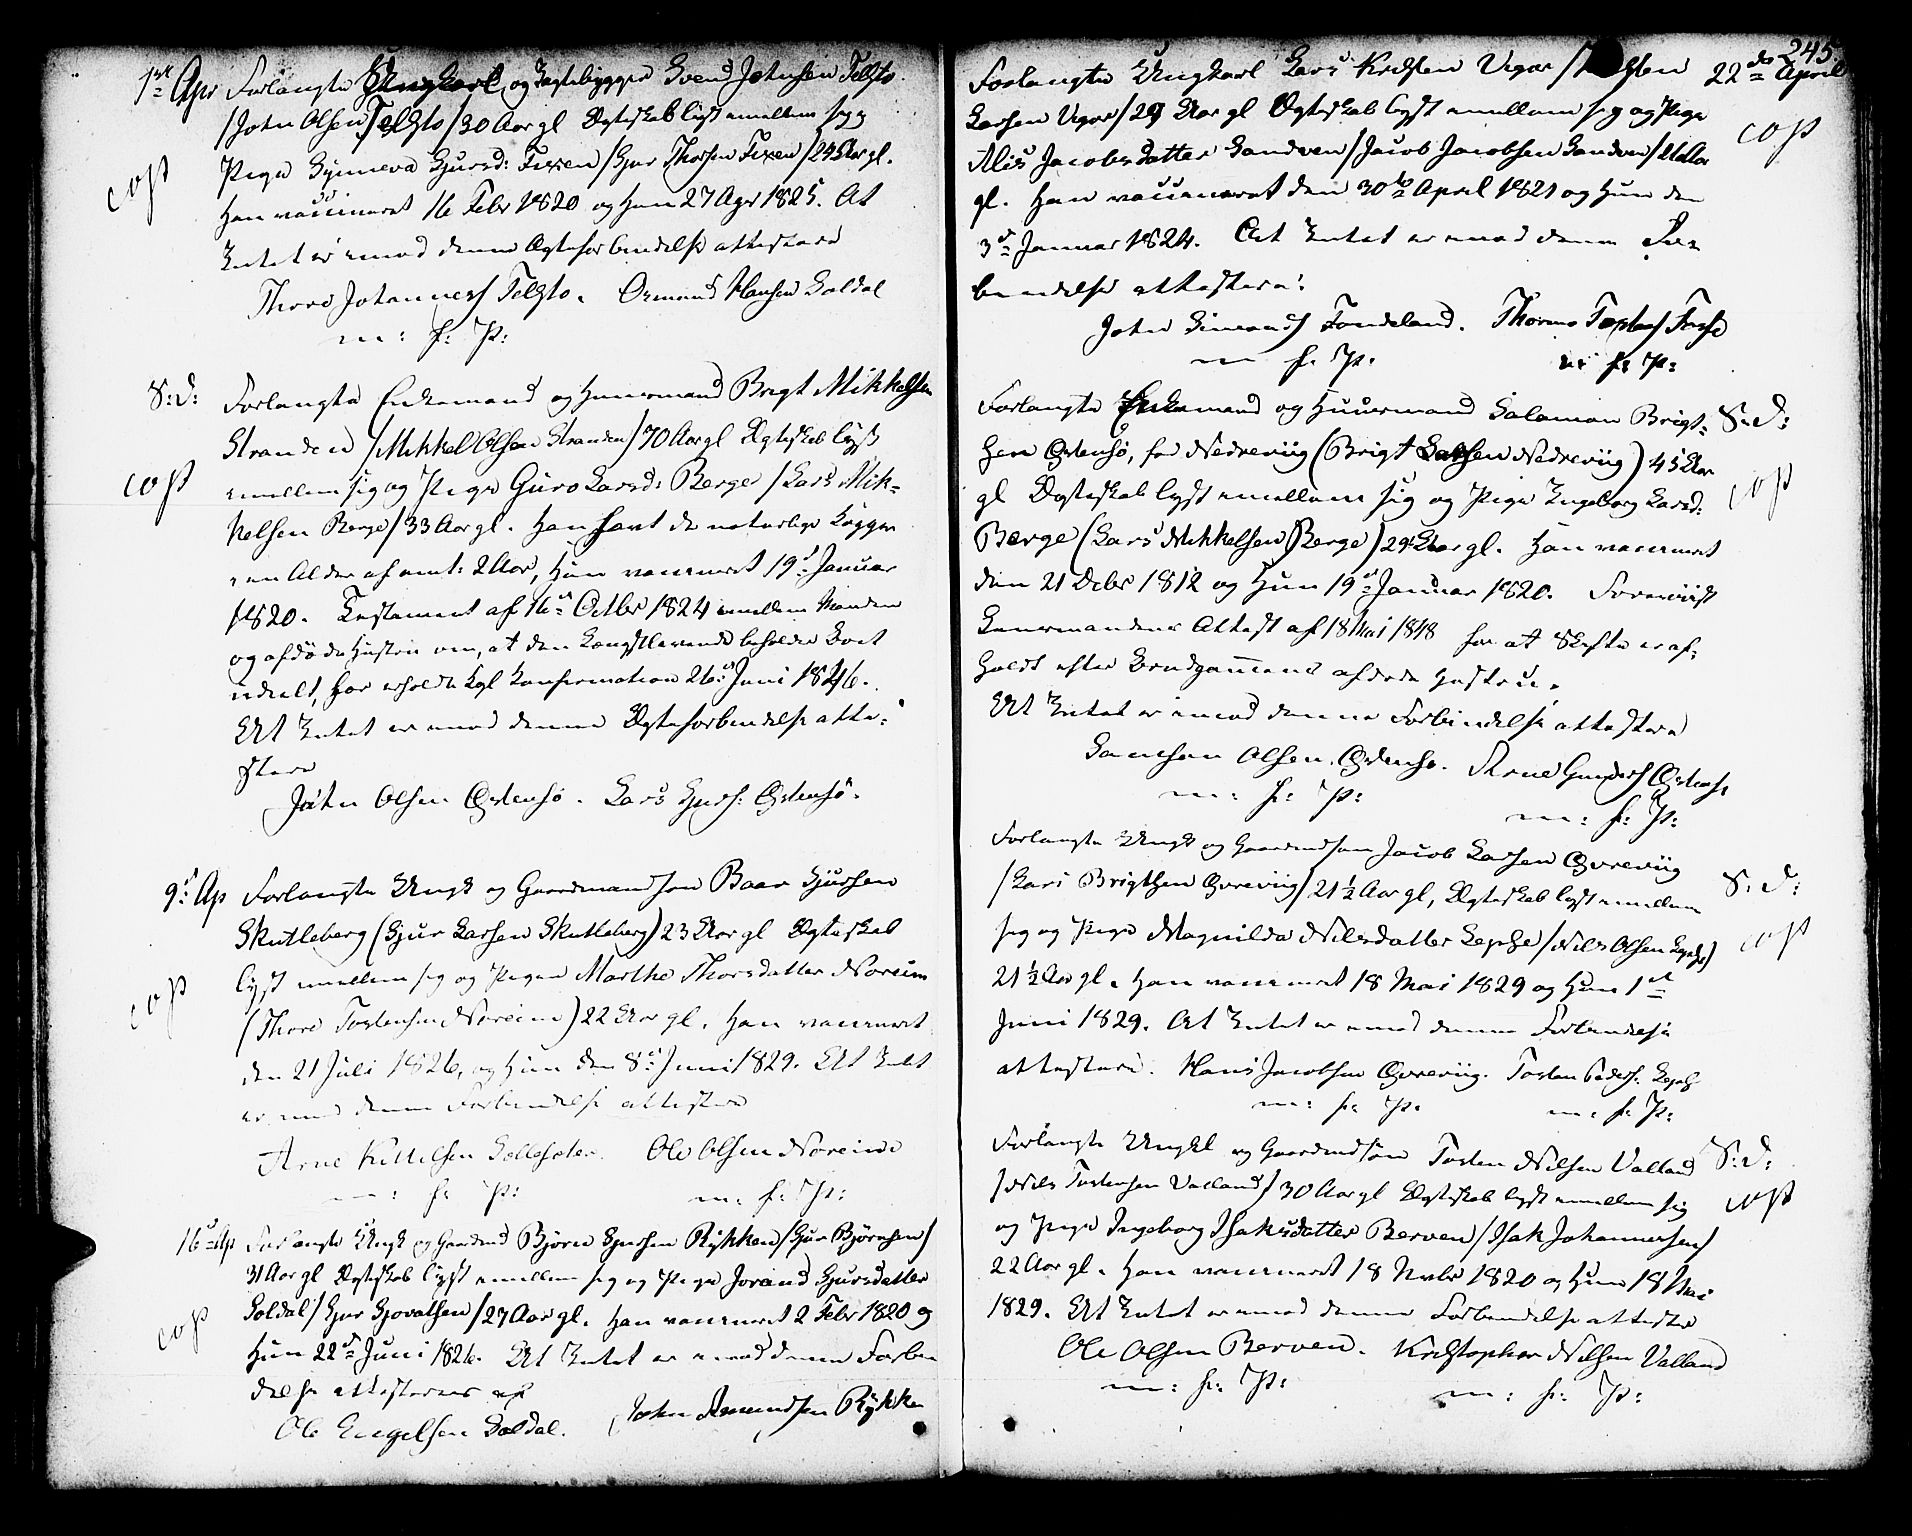 1ste Apr Forlangte Ungkarl og Jagtebygger Svend Johnsen Telgto
/John Olsen Telgto/ 30 Aar gl Ægteskab lyst mellem sig og
Pige Synneva Sjursd: Fixen /Sjur Thorsen Fixen/ 24 Aar gl.
cop
Han vaccineret 16 Febr 1820 og Hun 27 Agr 1825. At
Intet er imod denne Ægteforbindelse attestere
Thore Johanness Telgto. Osmund Hansen Soldal
m: f: P:
S: D: Forlangte Enkemand og Huusmand Brigt Mikkelsen
Stranden /Mikkel Olsen Stranden/ 70 Aar gl Ægteskab lyst
cop
imellem sig og Pige Guro Larsd: Berge /Lars Mik-
kelsen Berge/ 33 Aar gl. Han havt de naturlige Kopper
i en Alder af omt: 2 Aar, Hun vaccineret 19de Januar
1820. Testament af 16de Octbr 1824 mellem Manden
og afdøde Hustru om, at den Længstlevende beholder Boet
udeelt, har erholdt Kgl Konfirmation 26de Juni 1826.
At Intet er imod denne Ægteforbindelse atte-
stere
John Olsen Østensø. Lars Sjurs: Østensø.
9de Ap Forlangte Ungk og Gaardmandsøn Baar Sjursen
Skutleberg (Sjur Larsen Skutleberg) 23 Aar gl Ægteskab
lyst imellem sig og Pigen Marthe Thorsdatter Noreim
cop
(Thore Torstensen Noreim) 22 Aar gl. Han vaccineret
den 21 Juli 1826, og Hun den 8de Juni 1829. At Intet
er imod denne Forbindelse attestere
Arne Kittilsen Ole Olsen Noreim
m: f: P: m: f: P:
16de Ap Forlangte Ungk og Gaardmd Bjørn Sjursen Rykken /Sjur Bjørnsen/
31 Aar gl Ægteskab lyst imellem sig og Pige Jorand Sjursdatter
Soldal /Sjur Sjovatsen/ 27 Aar gl. Han vaccineret 2 Febr 1820 og
cop
Hun 22de Juni 1826. At Intet er imod denne Forbin
delse attesteres af
Ole Engelsen Soldal. John Amundsen Rykken
245
Forlangte Ungkarl Lars Kristen Vigør 22de April
Larsen Vigør/ 29 Aar gl Ægteskab lyst imellem sig og Pige
cop
Alis Jacobsdatter Sandven /Jacob Jacobsen Sandven/ Aar
gl. Han vaccineret den 30te April 1821 og Hun den
3de Januar 1824. At Intet er imod denne For
bindelse attestere:
John Simonss Tondeland. Thormo
m f: P: m f: P:
Forlangte Enkemand og Huusmand Salamon Brigt- S: D:
sen Østensø, før Nedreviig (Brigt Larsen Nedreviig) 45 Aar
gl Ægteskab lyst imellem sig og Pige Ingeborg Larsd:
cop
Berge (Lars Mikkelsen Berge) 29 Aar gl. Han vaccineret
den 21 Debr 1812 og Hun 19de Januar 1820. Foreviist
Lensmandens Attest af 18 Mai 1848 for at Skifte er af-
holdt efter Brudgommens afdøde Hustru.
At Intet er imod denne Forbindelse attestere
Samson Olsen Østensø. Arne Gunders Østensø
m: f: P: m: f: P:
Forlangte Ungk og Gaardmdsøn Jacob Larsen Øvreviig
/Lars Brigtsen Øvreviig/ 21½ Aar gl, Ægteskab lyst imellem
S: D:
sig og Pige Magnilda Nilsdatter Lepse /Nils Olsen Lepse/
cop
21½ Aar gl. Han vaccineret 18 Mai 1829 og Hun 1ste
Juni 1829. At Intet er imod denne Forbindelse
attestere. Hans Jacobsen Øvreviig. Torsten Peders: Lepse
m: f: P: m: f: P:
Forlangte Ungkl og Gaardmdsøn Torsten Nilsen Valland S: D:
/Nils Torstensen Valland/ 30 Aar gl Ægteskab lyst imellem sig
og Pige Ingeborg Isaksdatter Berven /Isak Johannessen/
cop
22 Aar gl. Han vaccineret 18 Nvbr 1820 og Hun 18 Mai
1829. At Intet er imod denne Forbindelse attestere
Ole Olsen Berven. Kristopher Nilsen Valland
m: f: P: m: f: P: